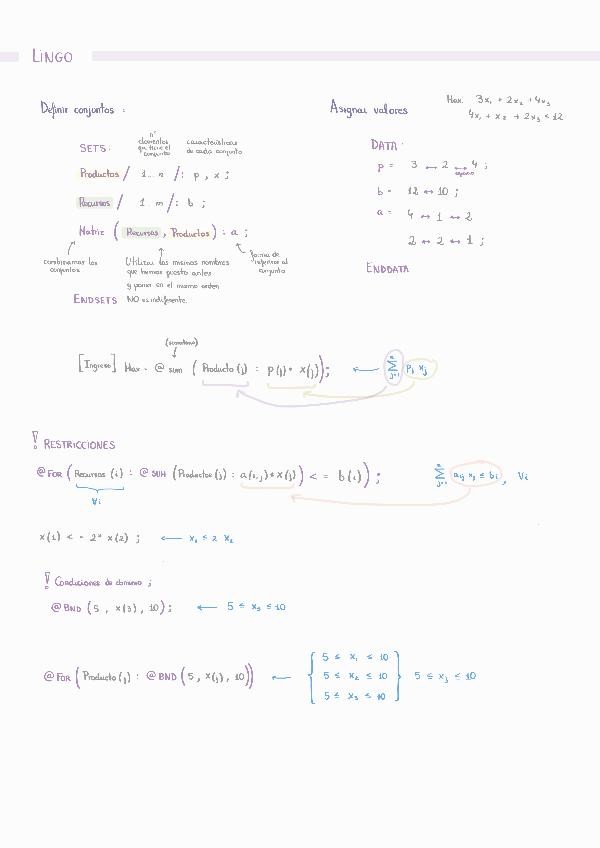 LINGO
Definir conjuntos :
SETS:
nº elementos que tiene el conjunto
características de cada conjunto
Productos / 1... n /: p , x ;
Recursos / 1... m /: b ;
Matriz ( Recursos, Productos) : a ;
combinamos los conjuntos
Utilizar los mismos nombres que hemos puesto antes y poner en el mismo orden
forma de referirnos al conjunto
ENDSETS NO es indiferente.
Asignar valores
Max. 3x₁ + 2x₂ + 4x₃
4x₁ + x₂ + 2x₃ ≤ 12
DATA:
p = 3 ↔ 2 ↔ 4 ;
espacio
b = 12 ↔ 10 ;
a = 4 ↔ 1 ↔ 2
2 ↔ 2 ↔ 1 ;
ENDDATA
(sumatorio)
[Ingreso] Max = @ sum ( Producto (j) : p(j) * x(j)); ← ∑ⁿⱼ₌₁ pⱼ xⱼ
! RESTRICCIONES
@ FOR ( Recursos (i) : @ SUM (Productos (j) : a(i,j)*x(j)) < = b(i)) ; ∑ⁿⱼ₌₁ aᵢⱼ xⱼ ≤ bᵢ , ∀i
∀i
x(1) < = 2* x(2) ; ← x₁ ≤ 2 x₂
! Condiciones de dominio ;
@ BND (5 , x(3) , 10) ; ← 5 ≤ x₃ ≤ 10
@ FOR ( Producto (j) : @ BND (5 , x(j) , 10)) ← { 5 ≤ x₁ ≤ 10
5 ≤ x₂ ≤ 10 } 5 ≤ xⱼ ≤ 10
5 ≤ x₃ ≤ 10